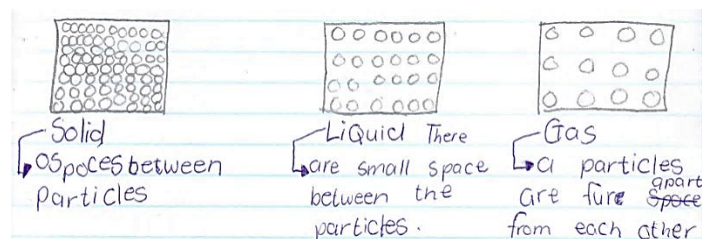 Solid
0 spaces between
particles
Liquid There
are small space
between the
particles.
Gas
a particles
are fure apart
from each other